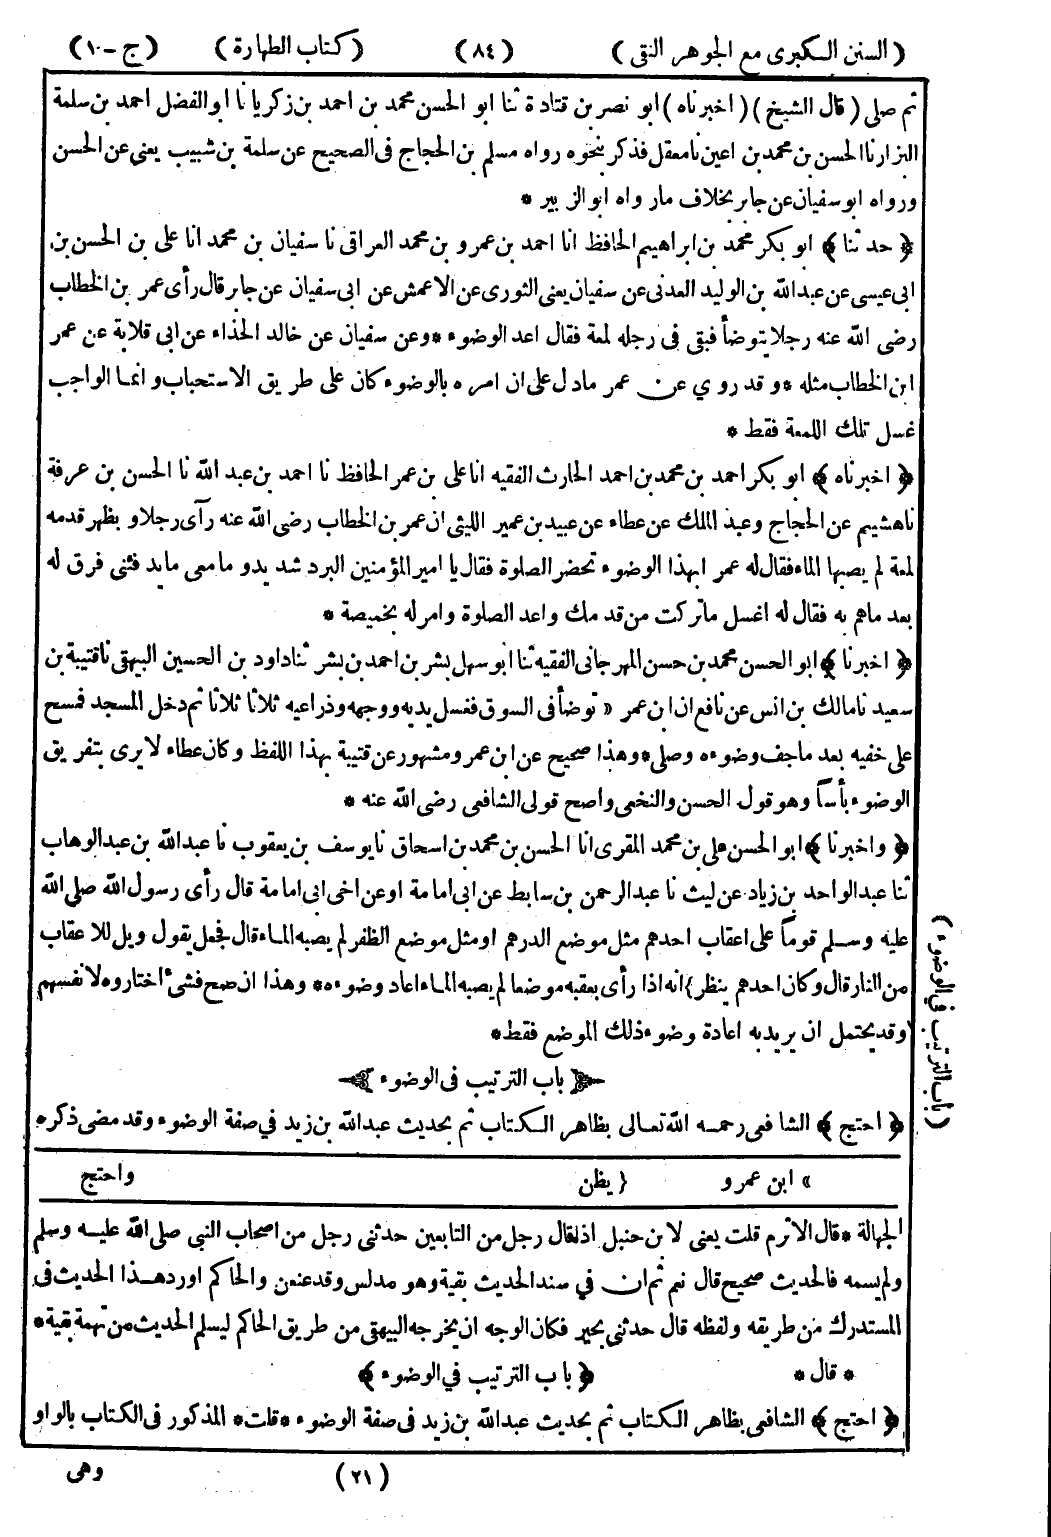 ( السنن الكبرى مع الجوهر النقى ) ( ٨٤ ) ( كتاب الطهارة ) ( ج -١٠ )
ثم صلى ( قال الشيخ ) ( اخبرناه ) ابو نصر بن قتادة ثنا ابو الحسن محمد بن احمد بن زكريا نا ابو الفضل احمد بن سلمة
البزار نا الحسن بن محمد بن اعين نا معقل فذكر بنحوه رواه مسلم بن الحجاج فى الصحيح عن سلمة بن شبيب يعنى عن الحسن
ورواه ابو سفيان عن جابر بخلاف ما رواه ابو الزبير *
﴿ حدثنا ﴾ ابو بكر محمد بن ابراهيم الحافظ انا احمد بن عمرو بن محمد العراقى نا سفيان بن محمد انا على بن الحسن بن
ابى عيسى عن عبد الله بن الوليد العدنى عن سفيان يعنى الثورى عن الاعمش عن ابى سفيان عن جابر قال رأى عمر بن الخطاب
رضى الله عنه رجلا يتوضأ فبقى فى رجله لمعة فقال اعد الوضوء * وعن سفيان عن خالد الحذاء عن ابى قلابة عن عمر
ابن الخطاب مثله * وقد روي عن عمر ما دل على ان امره بالوضوء كان على طريق الاستحباب وانما الواجب
غسل تلك اللمعة فقط *
﴿ اخبرناه ﴾ ابو بكر احمد بن محمد بن احمد الحارث الفقيه انا على بن عمر الحافظ نا احمد بن عبد الله نا الحسن بن عرفة
نا هشيم عن الحجاج وعبد الملك عن عطاء عن عبيد بن عمير الليثى ان عمر بن الخطاب رضى الله عنه رآى رجلا و بظهر قدمه
لمعة لم يصبها الماء فقال له عمر ابهذا الوضوء تحضر الصلوة فقال يا امير المؤمنين البرد شديد و ما معى ما يدفئنى فرق له
بعد ما هم به فقال له اغسل ما تركت من قدمك واعد الصلوة وامر له بخميصة *
﴿ اخبرنا ﴾ ابو الحسن محمد بن حسن المهرجانى الفقيه ثنا ابو سهل بشر بن احمد بن بشر ثنا داود بن الحسين البيهقى نا قتيبة بن
سعيد نا مالك بن انس عن نافع ان ابن عمر « توضأ فى السوق فغسل يديه ووجهه وذراعيه ثلاثا ثلاثا ثم دخل المسجد فمسح
على خفيه بعد ما جف وضوءه وصلى * وهذا صحيح عن ابن عمر ومشهور عن قتيبة بهذا اللفظ وكان عطاء لا يرى بتفريق
الوضوء بأسا وهو قول الحسن والنخعى واصح قولى الشافعى رضى الله عنه *
﴿ واخبرنا ﴾ ابو الحسن على بن محمد المقرى انا الحسن بن محمد بن اسحاق نا يوسف بن يعقوب نا عبد الله بن عبد الوهاب
ثنا عبد الواحد بن زياد عن ليث نا عبد الرحمن بن سابط عن ابى امامة او عن اخى ابى امامة قال رأى رسول الله صلى الله
عليه وسلم قوماً على اعقاب احدهم مثل موضع الدرهم او مثل موضع الظفر لم يصبه الماء قال فجعل يقول ويل للاعقاب
من النار قال وكان احدهم ينظر } انه اذا رأى بعقبه موضعا لم يصبه الماء اعاد وضوءه * وهذا ان صح فشىء اختاروه لانفسهم
وقد يحتمل ان يريد به اعادة وضوء ذلك الموضع فقط *
﴿ باب الترتيب فى الوضوء ﴾
( باب الترتيب فى الوضوء )
﴿ احتج ﴾ الشافعى رحمه الله تعالى بظاهر الكتاب ثم بحديث عبد الله بن زيد فى صفة الوضوء وقد مضى ذكره
» ابن عمرو { يظن واحتج
الجهالة * قال الاثرم قلت يعنى لابن حنبل اذا قال رجل من التابعين حدثنى رجل من اصحاب النبى صلى الله عليه وسلم
ولم يسمه فالحديث صحيح قال نعم ثم ان في سند الحديث بقية وهو مدلس وقد عنعن والحاكم اورد هذا الحديث فى
المستدرك من طريقه ولفظه قال حدثنى بحير فكان الوجه ان يخرجه البيهقى من طريق الحاكم ليسلم الحديث من تهمة بقية *
* قال * ﴿ باب الترتيب في الوضوء ﴾
﴿ احتج ﴾ الشافعى بظاهر الكتاب ثم بحديث عبد الله بن زيد فى صفة الوضوء * قلت * المذكور فى الكتاب بالواو
( ٢١ ) وهى